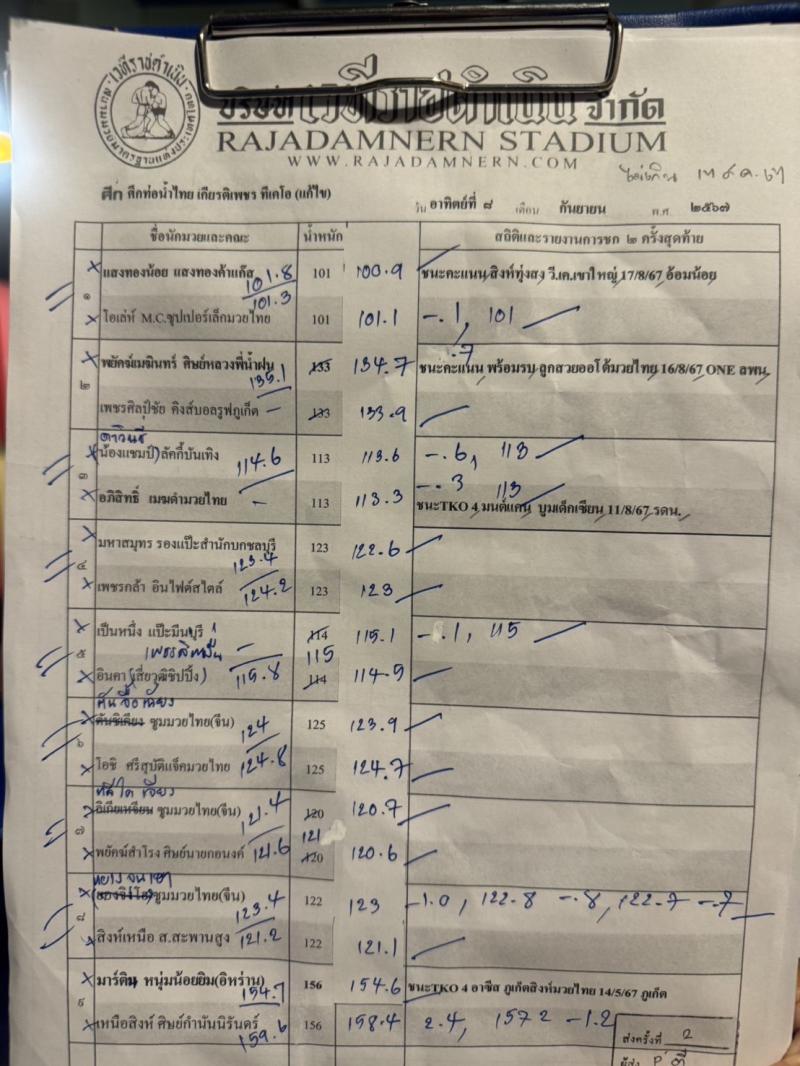 เวทีราชดำเนิน
บริษัท เวทีราชดำเนิน จำกัด
RAJADAMNERN STADIUM
WWW.RAJADAMNERN.COM
ศึก ศึกท่อน้ำไทย เกียรติเพชร ทีเคโอ (แก้ไข)
วัน อาทิตย์ที่ ๘ เดือน กันยายน พ.ศ. ๒๕๖๗
ชื่อนักมวยและคณะ น้ำหนัก สถิติและรายงานการชก ๒ ครั้งสุดท้าย
๑
แสงทองน้อย แสงทองค้าแก๊ส 101.8 101 100.9 ชนะคะแนน สิงห์ทุ่งสง วี.เค.เขาใหญ่ 17/8/67 อ้อมน้อย
101.3
โอเล่ห์ M.C.ซุปเปอร์เล็กมวยไทย 101 101.1 -.1, 101
๒
พยัคฆ์เมฆินทร์ ศิษย์หลวงพี่น้ำฝน 135.1 133 134.7 ชนะคะแนน พร้อมรบ ลูกสวยออโด้มวยไทย 16/8/67 ONE ลพน.
-.7
เพชรศิลป์ชัย คิงส์บอลรูฟภูเก็ต - 133 133.9
๓
ดาวินชี
(น้องแชมป์) ลัคกี้บันเทิง 114.6 113 113.6 -.6, 113
อภิสิทธิ์ เมฆดำมวยไทย - 113 113.3 -.3 113
ชนะTKO 4 มนต์แคน บูมเด็กเซียน 11/8/67 รดน.
๔
มหาสมุทร รองแป๊ะสำนักบกชลบุรี 123.4 123 122.6
เพชรกล้า อินไฟต์สไตล์ 124.2 123 123
๕
เป็นหนึ่ง แป๊ะมีนบุรี - 114 115.1 -.1, 115
115
อินคา (เสี่ยวุฒิชิปปิ้ง) 115.8 114 114.5
๖
ซูมมวยไทย(จีน) 124 125 123.9
โอชิ ศรีสุบัติแจ็คมวยไทย 124.8 125 124.7
๗
ซูมมวยไทย(จีน) 121.4 120 120.7
121
พยัคฆ์สำโรง ศิษย์นายกอนงค์ 121.6 120 120.6
๘
ซูมมวยไทย(จีน) 123.4 122 123 -1.0, 122.8 -.8, 122.7 -.7
สิงห์เหนือ ส.สะพานสูง 121.2 122 121.1
๙
มาร์ติน หนุ่มน้อยยิม(อิหร่าน) 154.7 156 154.6 ชนะTKO 4 อาซีส ภูเก็ตสิงห์มวยไทย 14/5/67 ภูเก็ต
เหนือสิงห์ ศิษย์กำนันนิรันดร์ 159.6 156 158.4 2.4, 157.2 -1.2
ส่งครั้งที่ 2
ผู้ส่ง